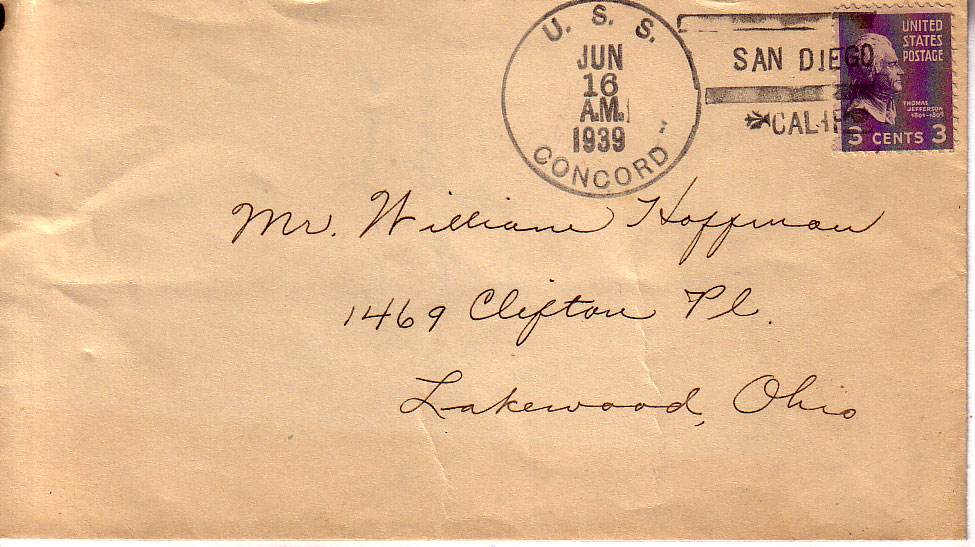 U. S. S.
JUN
16
A.M.
1939
CONCORD
SAN DIEGO
CALIF
UNITED
STATES
POSTAGE
THOMAS
JEFFERSON
1801-1809
3 CENTS 3
Mr. William Hoffman
1469 Clifton Pl.
Lakewood, Ohio